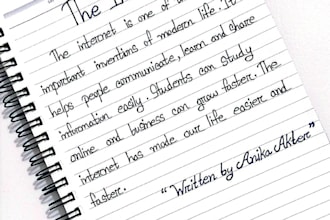 The
The internet is one of
important inventions of modern life. It
helps people communicate, learn and share
information easily Students can study
online and business can grow faster. The
internet has made our life easier and
faster.
"Written by Anika Akter"